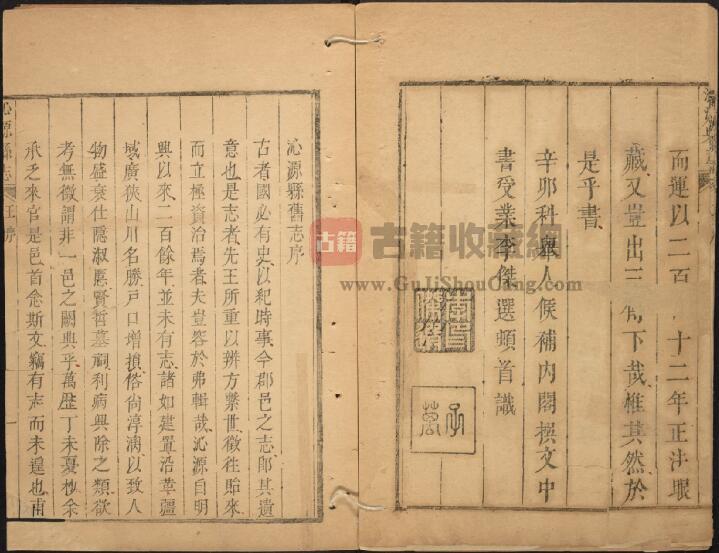 而運以二百 十二年正法眼
藏又豈出三 下哉惟其然於
是乎書
辛卯科舉人候補內閣撰文中
書受業李傑選頓首識
沁源縣舊志序
古者國必有史以紀時事今郡邑之志即其遺
意也是志者先王所重以辨方繫世徵往貽來
而立極資治焉者夫豈容於弗輯哉沁源自明
興以來二百餘年並未有志諸如建置沿革疆
域廣狹山川名勝戶口增損俗尚淳漓以致人
物盛衰仕隱淑慝賢哲墓嗣利病興除之類歘
考無徵謂非一邑之闕典乎萬歷丁未憂杪余
承乏來官是邑首念斯文竊有志而未遑也甫
沁源縣志 王序
古籍 古籍收藏網
www.GuJiShouCang.com